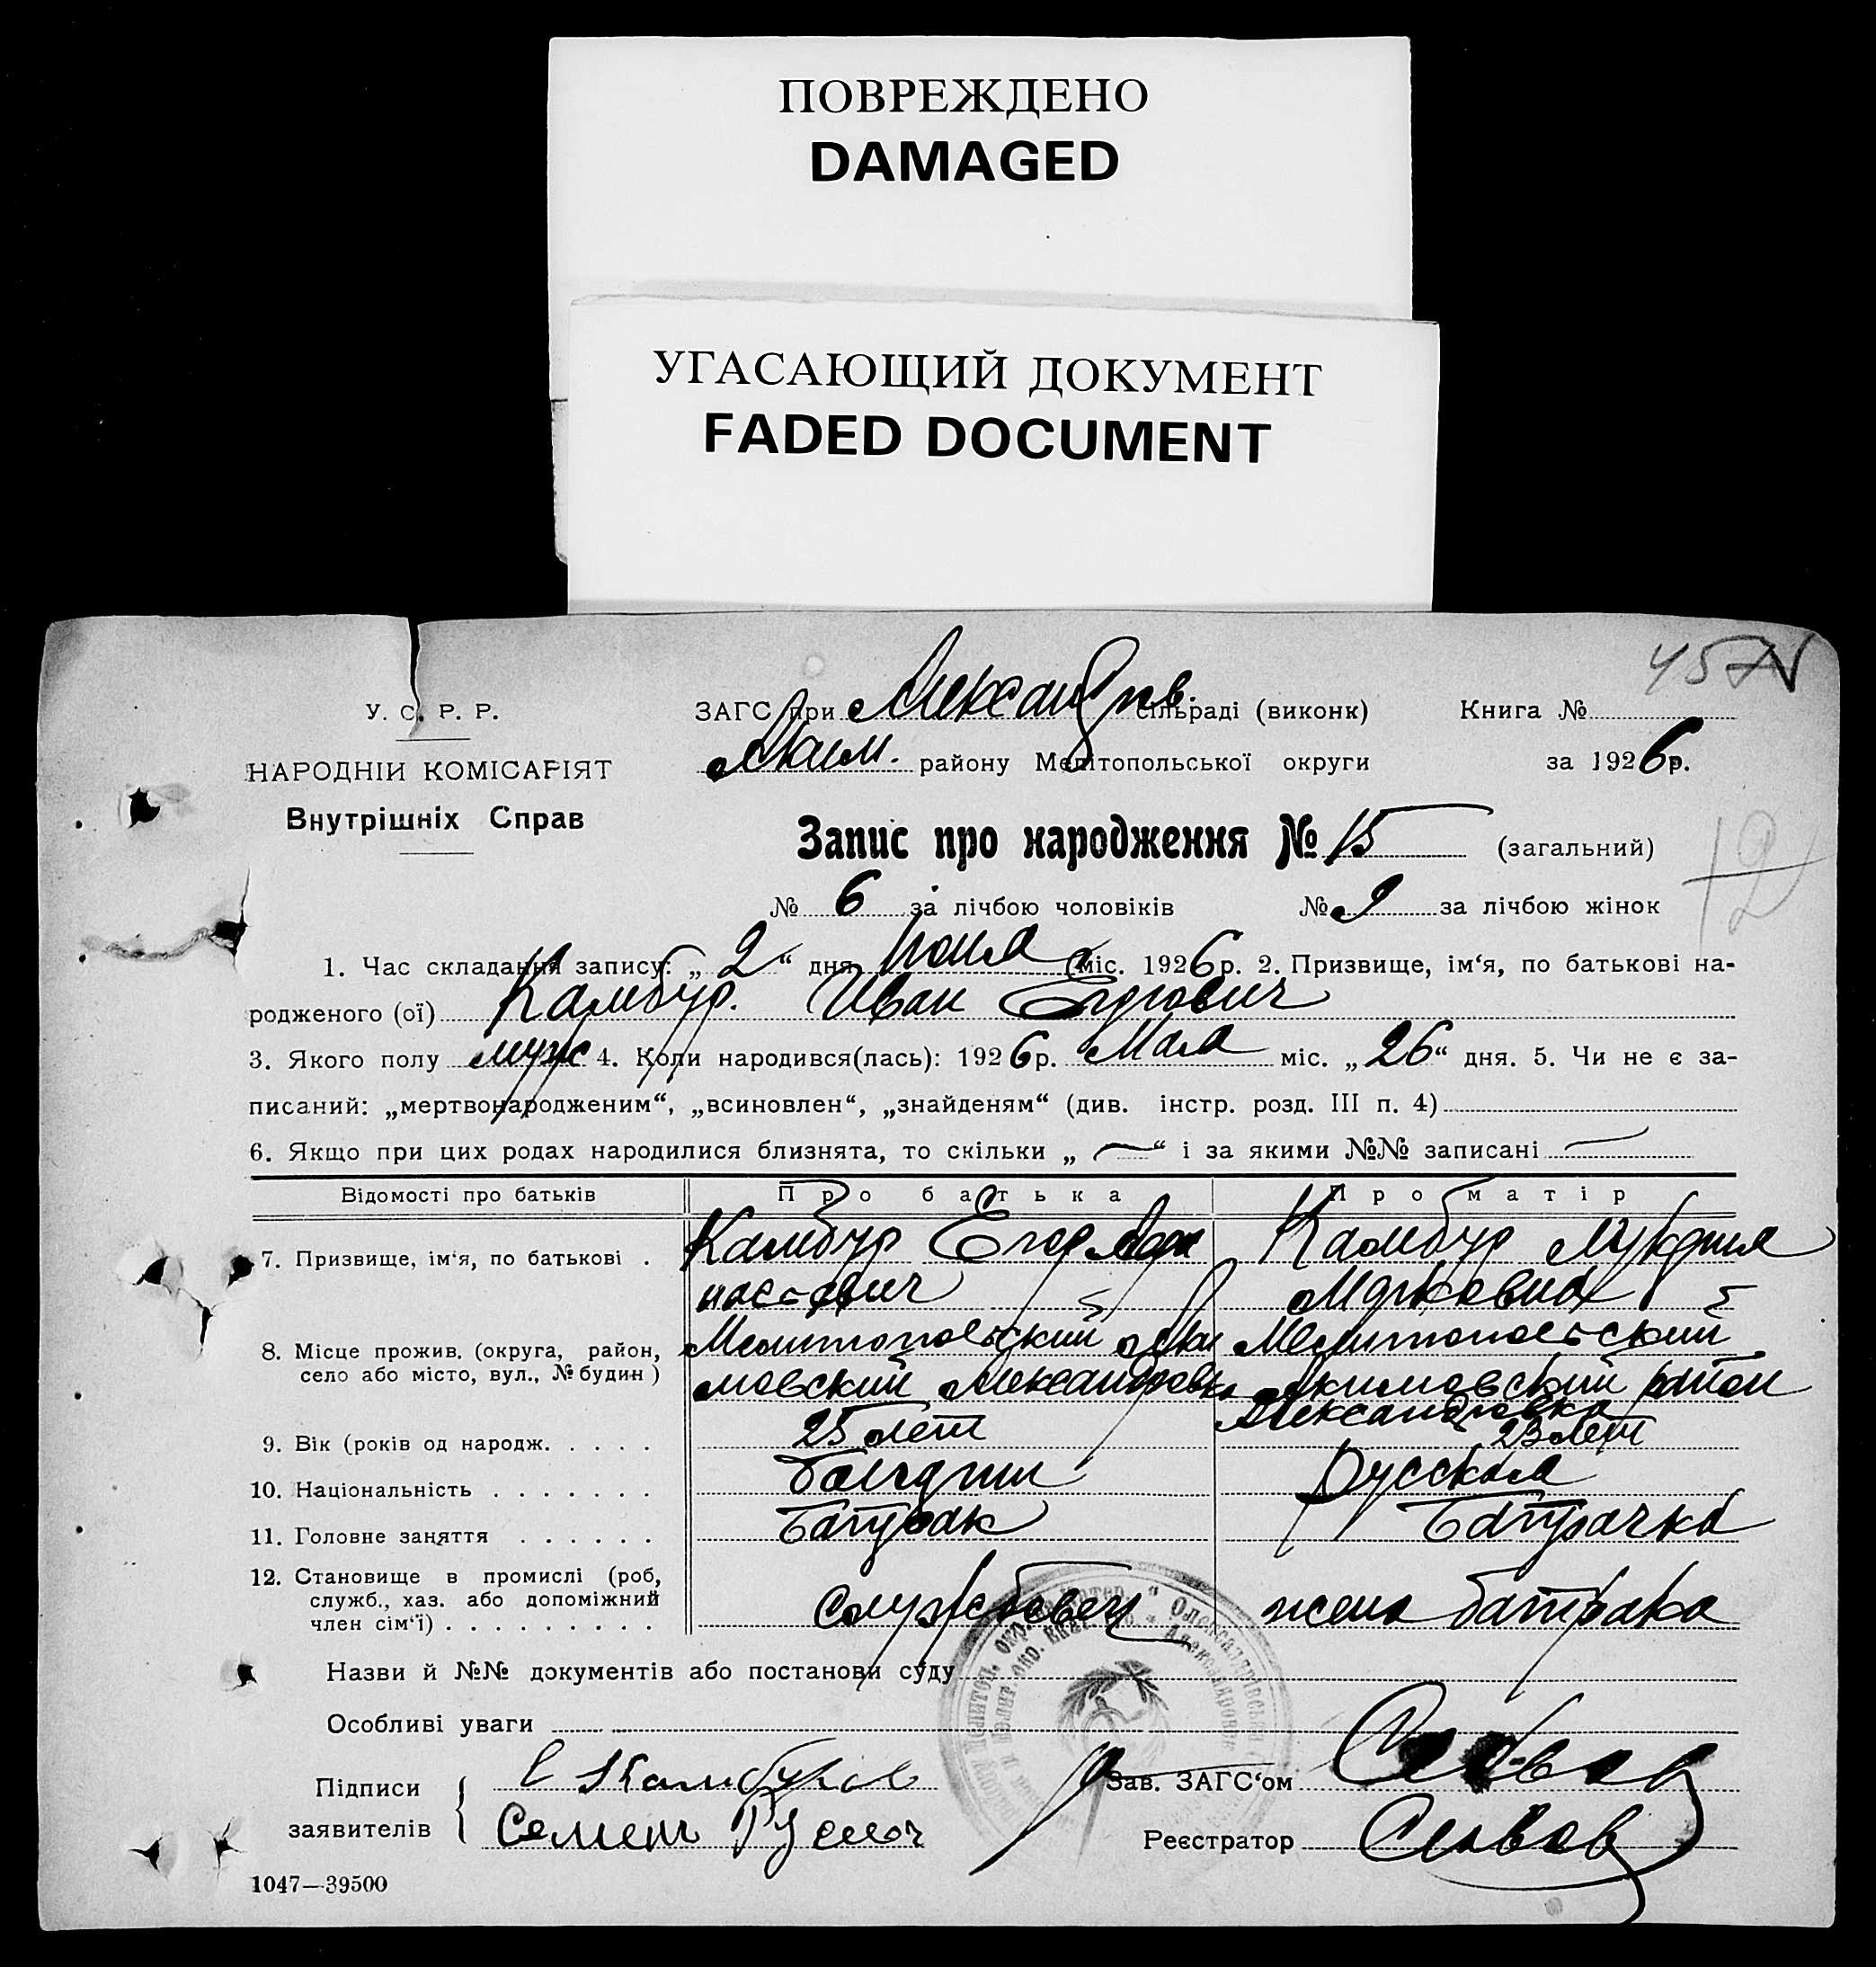 ПОВРЕЖДЕНО
DAMAGED
УГАСАЮЩИЙ ДОКУМЕНТ
FADED DOCUMENT
У. С. Р. Р.
НАРОДНІЙ КОМІСАРІЯТ
Внутрішніх Справ
ЗАГС при Александров. сільраді (виконк) Книга №
Аким. району Мелітопольської округи за 1926 р.
Запис про народження № 15 (загальний)
№ 6 за лічбою чоловіків № 9 за лічбою жінок
12
1. Час складання запису: „ 2 “ дня міс. 1926 р. 2. Призвище, ім‘я, по батькові на-
родженого (ої) Камбур. Иван Егорович
3. Якого полу муж 4. Коли народився(лась): 1926 р. Мая міс. „ 26 “ дня. 5. Чи не є за-
писаний: „мертвонародженим“, „всиновлен“, „знайденям“ (див. інстр. розд. III п. 4)
6. Якщо при цих родах народилися близнята, то скільки „ — “ і за якими №№ записані —
Відомості про батьків Про батька Про матір
7. Призвище, ім‘я, по батькові . Камбур Егор Камбур Лукерия
Марковна
8. Місце прожив. (округа, район, Мелитопольский Аки Мелитопольский
село або місто, вул., № будин ) мовский Александровка Акимовский район
Александровка
9. Вік (років од народж. . . . . 25 лет 23 лет
10. Національність . . . . . . . Болгарин Русская
11. Головне заняття . . . . . . Батрак Батрачка
12. Становище в промислі (роб,
служб., хаз. або допоміжний
член сім‘ї) . . . . . . . . . жена батрака
Назви й №№ документів або постанови суду
Особливі уваги
Підписи Е Камбур Зав. ЗАГС‘ом
заявителів Семен Реєстратор
1047—39500